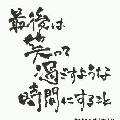 最後は
笑って
過ごすような
時間にすること